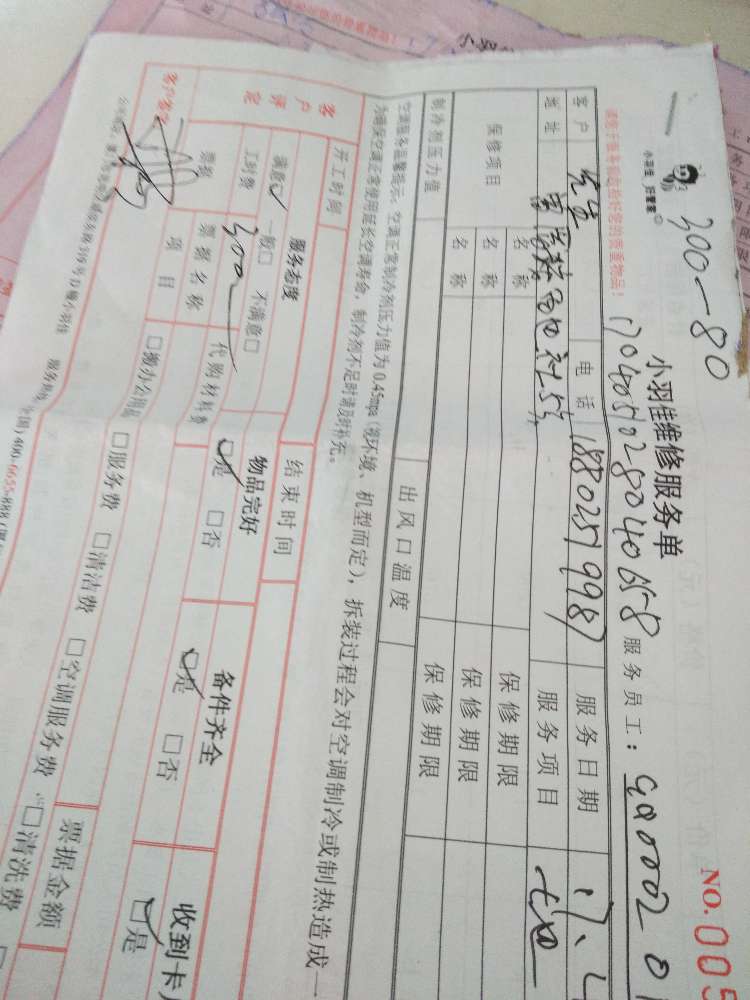 300-80
小羽佳 好管家
小羽佳维修服务单
服务员工：
NO.005
客户
先生
电话
18802519987
服务日期
17.
地址
服务项目
保修项目
名称
保修期限
名称
保修期限
名称
保修期限
制冷剂压力值
出风口温度
空调服务温馨提示：空调正常制冷剂压力值为0.45mpa（视环境、机型而定），拆装过程会对空调制冷或制热造成一
为确保空调正常使用延长空调寿命，制冷剂不足时请及时补充。
开工时间
结束时间
客户评定
服务态度
物品完好
备件齐全
收到卡
满意☑ 一般☐ 不满意☐
☑是 ☐否
☑是 ☐否
☑是
工时费
300
代购材料费
票据
票据名称
项目
☐搬办公用品 ☐服务费 ☐清洁费 ☐空调服务费 ☐清洗费
票据金额
客户签名
400-6655-888